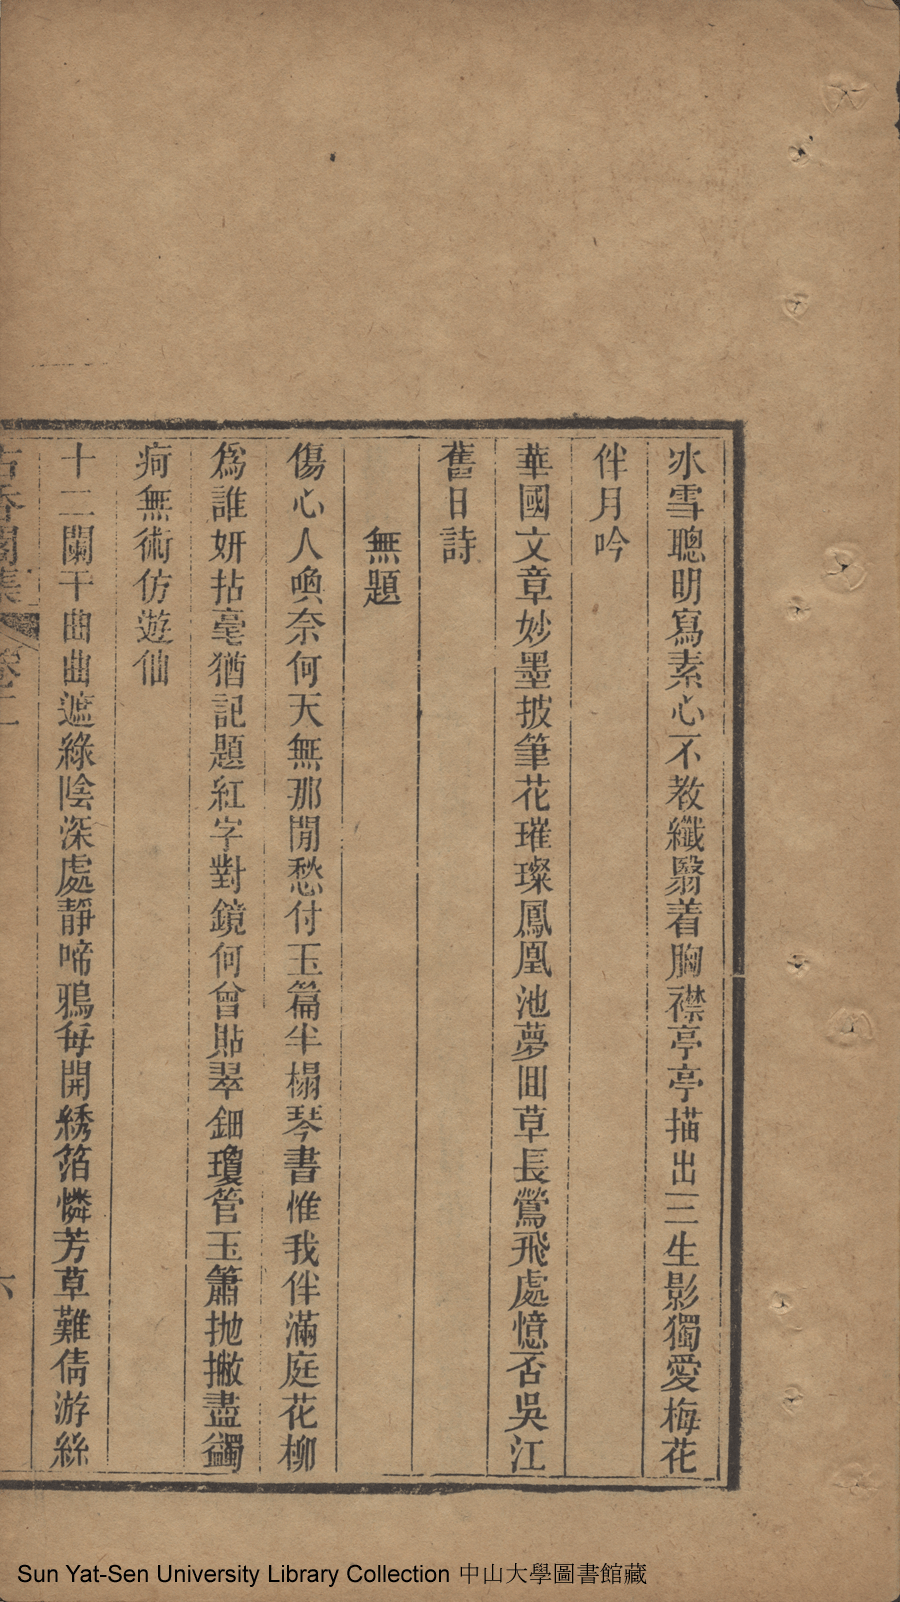 冰雪聰明寫素心不教纖翳着胸襟亭亭描出三生影獨愛梅花
伴月吟
華國文章妙墨披筆花璀璨鳳凰池夢囬草長鶯飛處憶否吳江
舊日詩
無題
傷心人喚奈何天無那閒愁付玉篇半榻琴書惟我伴滿庭花柳
爲誰妍拈毫猶記題紅字對鏡何曾貼翠鈿瓊管玉簫抛撇盡蠲
疴無術仿遊仙
十二闌干曲曲遮綠陰深處靜啼鴉每開綉箔憐芳草難倩游絲
古香閣集 卷二 六
Sun Yat-Sen University Library Collection 中山大學圖書館藏